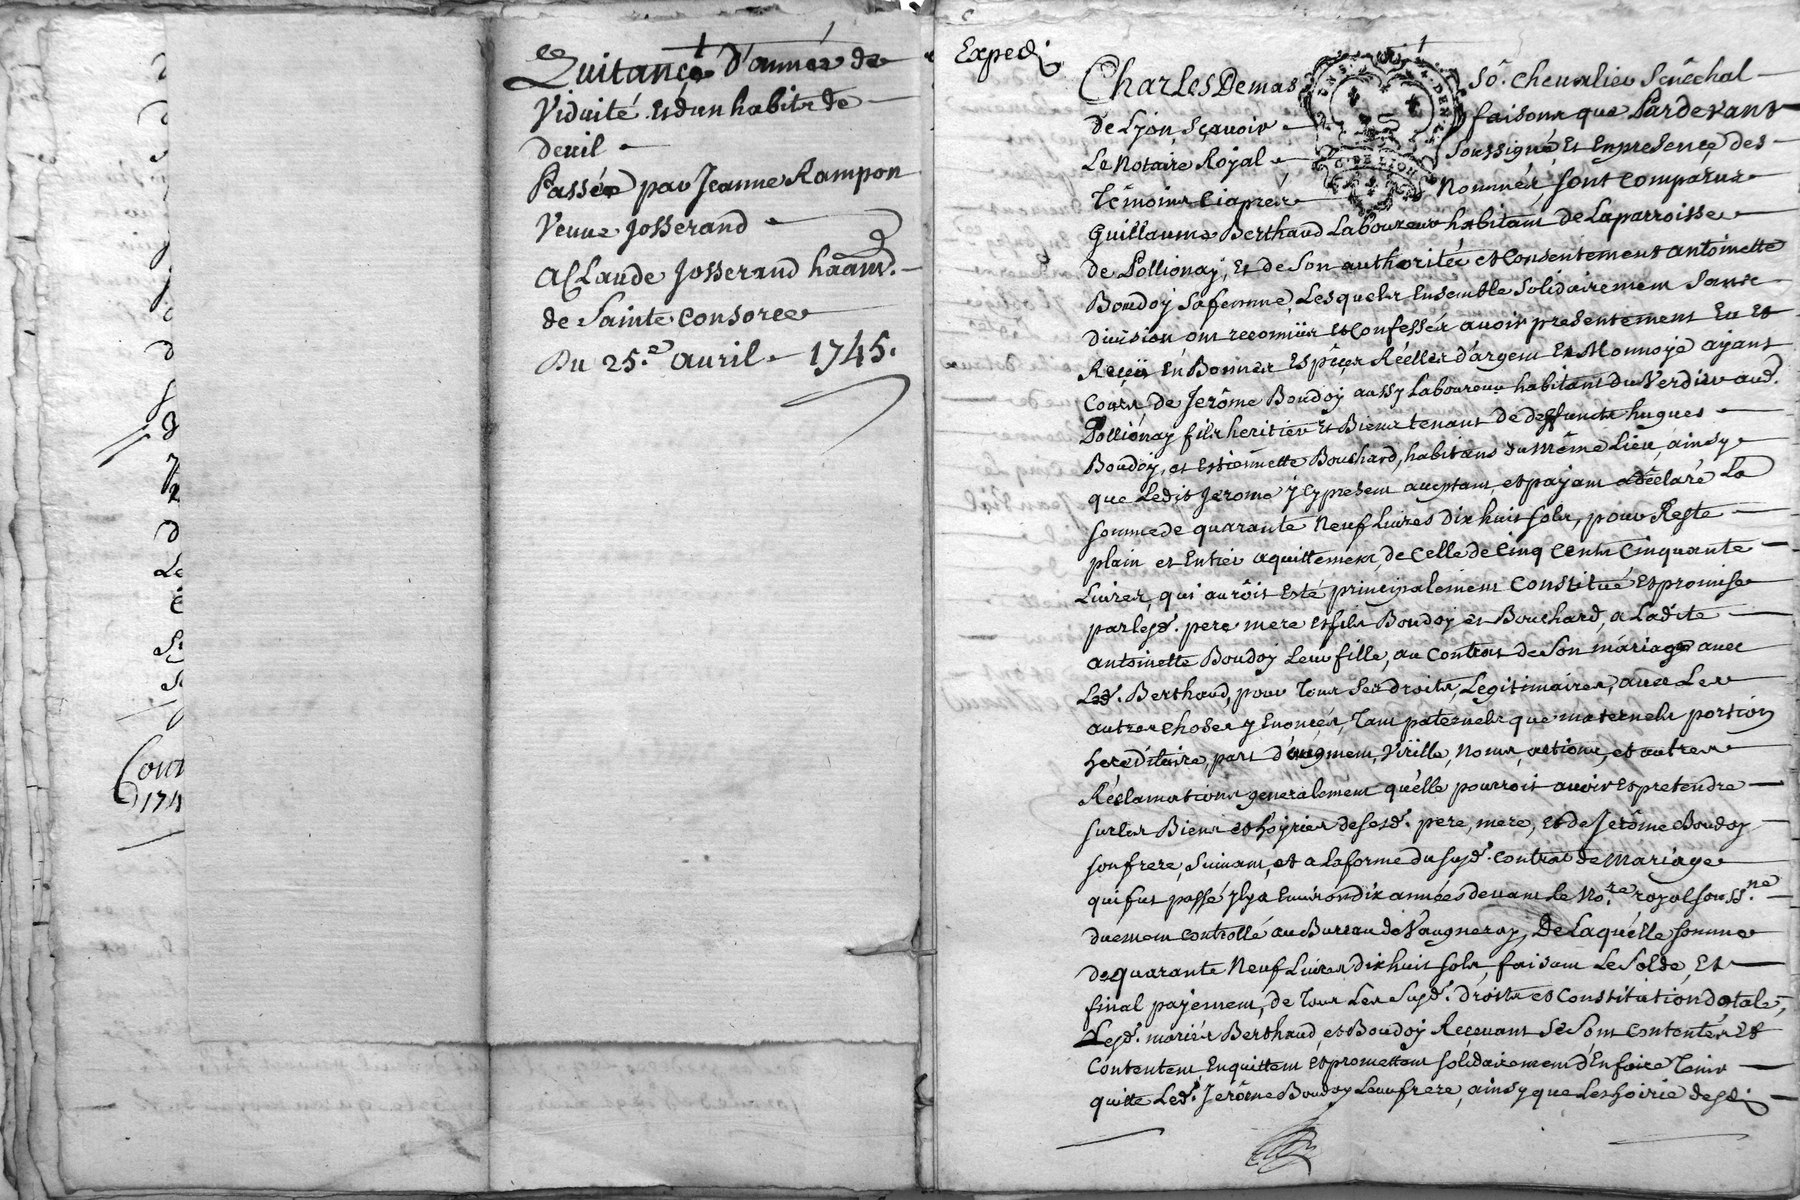 Quitance d'année de
Viduité et d'un habit de
deuil
Passée par Jeanne Rampon
Veuve Josserand
a Claude Josserand haând.
de Sainte Consorce
Du 25.e avril 1745.
Expedi
Charles Demas so. Chevalier Senêchal
de Lyon Sçavoir faisons que Pardevant
Le Notaire Royal Soussigné, Et En presence des
Têmoins Ciaprés Nommés sont Comparus
Guillaume Berthaud Laboureur habitant de La parroisse
de Pollionaÿ, Et de Son authorité et Consentement antoinette
Boudoÿ Sa femme, Lesquels Ensemble Solidairement Sans
division ont reconnüs et Confessés avoir presentement Eu Et
Reçü En Bonnes Espêces Réelles d'argent Et Monnoÿe aÿant
Cours, de Jerôme Boudoÿ aussy Laboureur habitant du Verdier aud.
Pollionaÿ fils heritier Et Biens tenant de deffuncts hugues
Boudoÿ, et Estiennette Bouchard, habitans du Même Lieu, ainsy
que Ledit Jerome ÿ Cy present acceptant, et paÿant a dêclaré La
somme de quarante Neuf Livres dix huit sols, pour Reste
plain et Entier aquittement, de Celle de Cinq Cents Cinquante
Livres, qui aurôit Esté principalement Constitué Et promise
par lesd. pere mere et fils Boudoÿ et Bouchard, a Ladite
antoinette Boudoÿ Leur fille, au Contrat de Son mariage avec
Led. Berthaud, pour Tous Ses droits Legitimaires, avec Les
autres choses ÿ Enoncés, Tant paternels que maternels portion
hereditaire, part d'augment, Virille, Noms, actions, et autres
Réclamations generalement qu'elle pourroit avoir Et pretendre
sur les Biens et hoÿries de sesd. pere, mere, Et de Jerôme Boudoÿ
son frere, Suivant, et a la forme du susd. Contrat de Mariage
qui fut passé Ilya Environ dix années devant le No.re royal souss.né
duement Controllé au Bureau de Vaugneray, De Laquelle somme
de quarante Neuf Livres dix huit sols, faisant Le Solde, Et
final paÿement, de Tous Les Susd. droits et Constitution dotale,
Lesd. mariés Berthaud, et Boudoÿ Recevant Se Sont Contentés Et
Contentent, En quittent Et promettent solidairement d'En faire Tenir
quitte Led. Jerôme Boudoÿ Leur frere, ainsy que Les hoirie desd